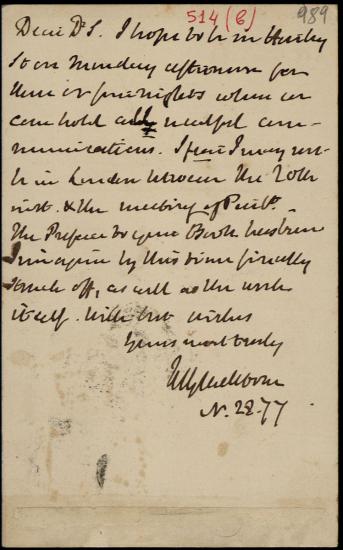 514 (6) 989
Dear Dr S. I hope to be in Harley
St on Monday afternoon for
three or four nights when we
can hold all needful com-
munications. I fear I may not
be in London between the 20th
inst. & the meeting of Parlt.
The Preface to your Book has been
I imagine by this time finally
struck off, as well as the work
itself. With best wishes
Yours most truly
WEGladstone
N. 28. 77